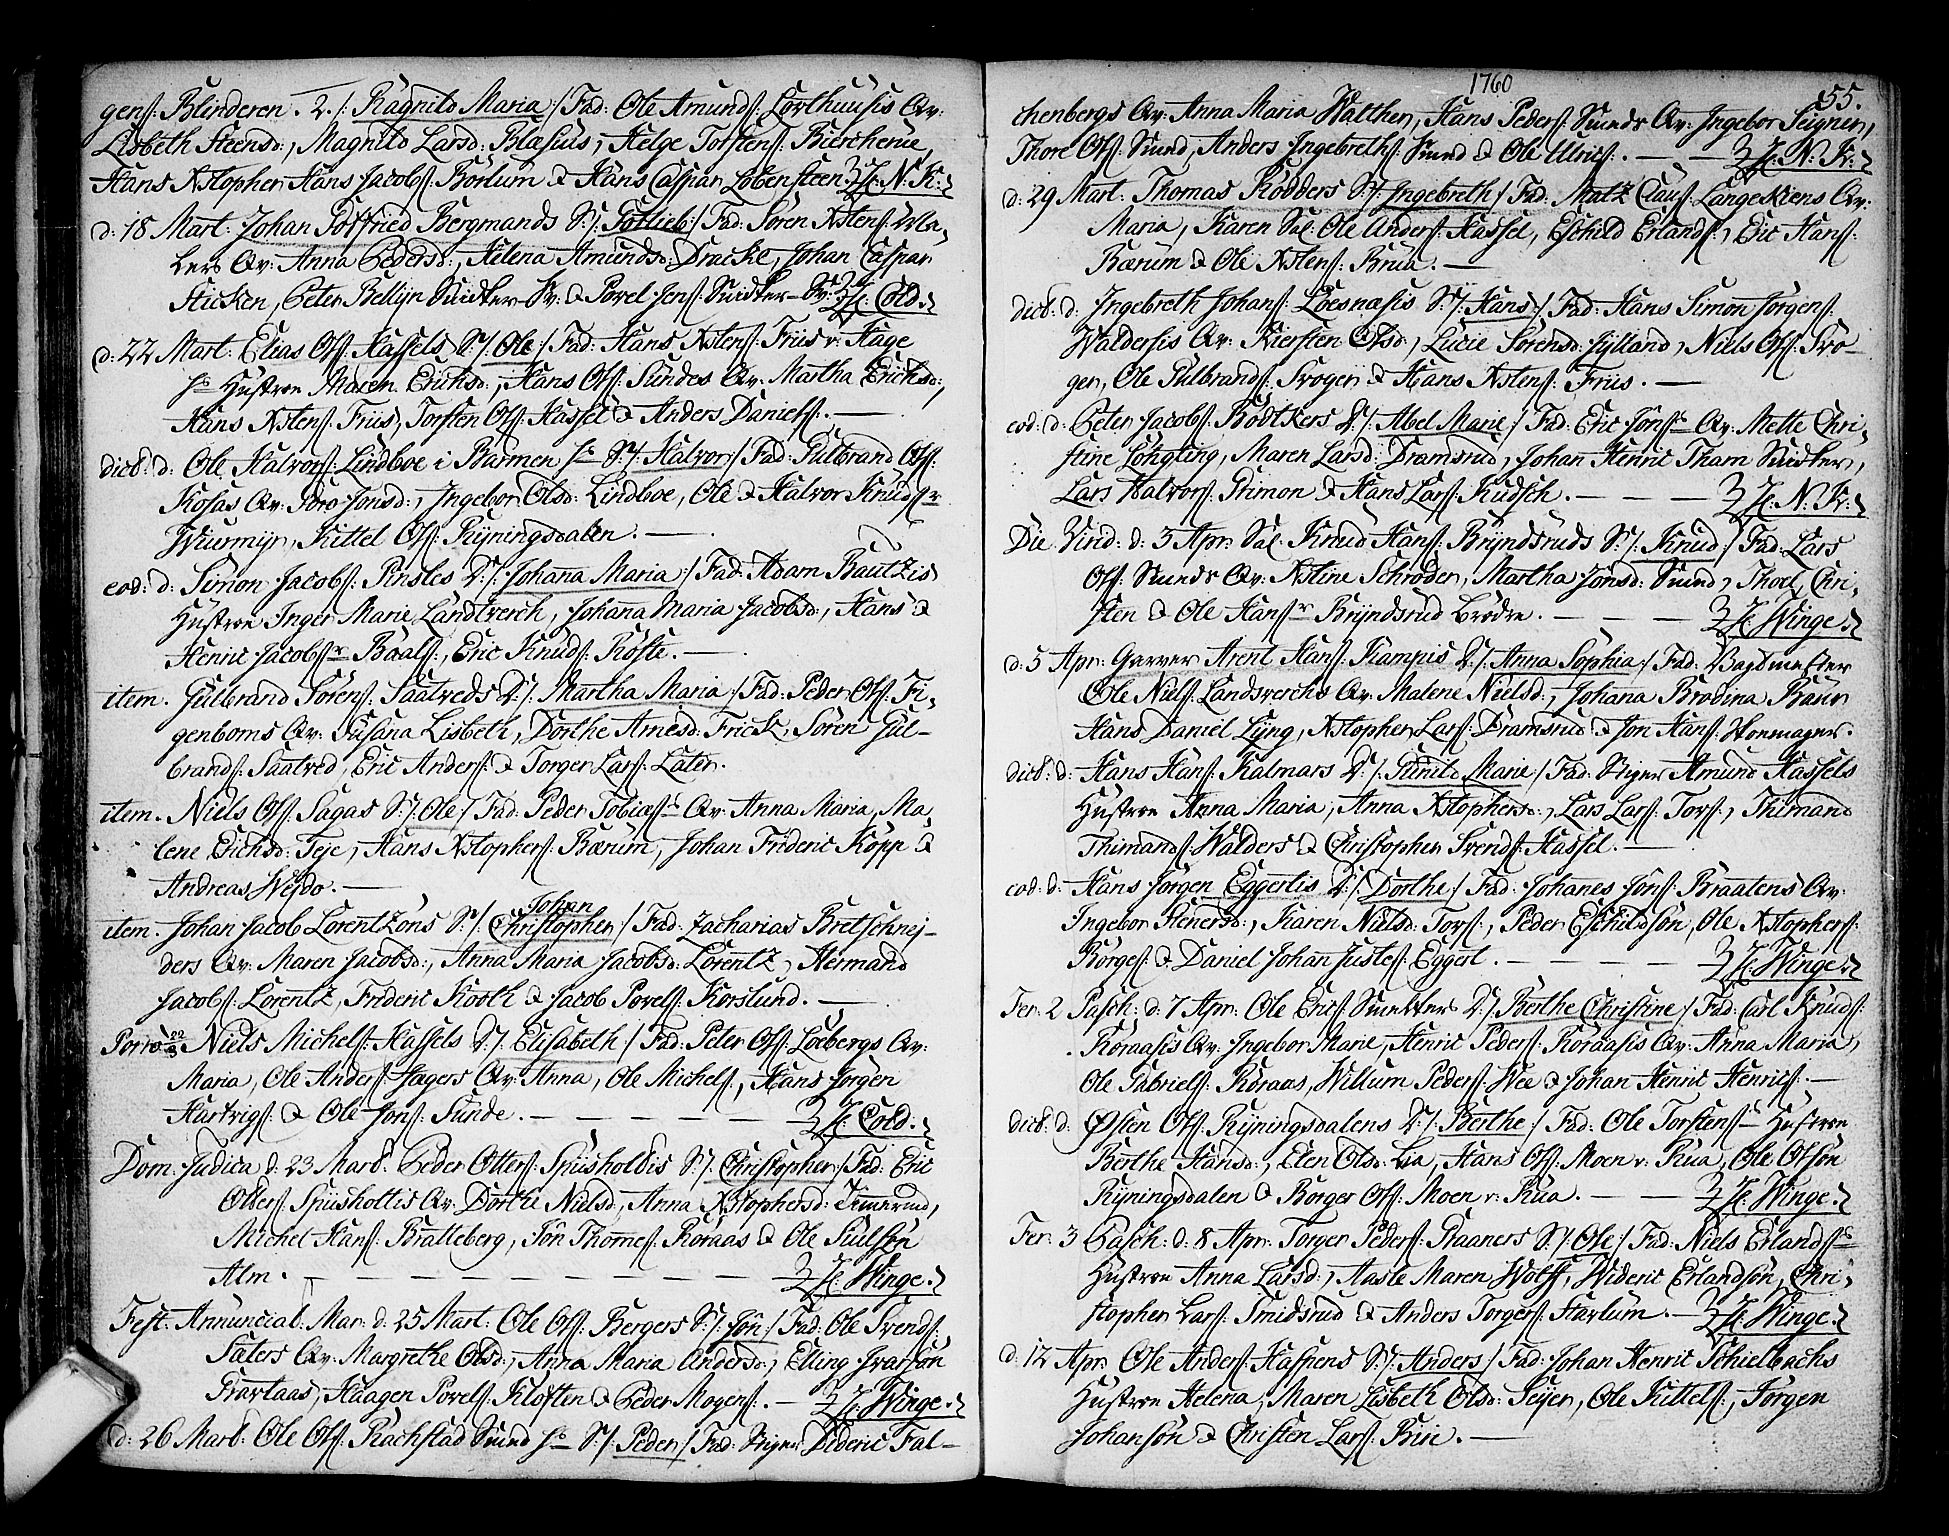 gens: Blinderen. 2. /: Ragnild Maria :/ Fad: Ole Amunds: Lorthuusis Qv:
Lisbeth Steensd:, Magnild Larsd: Blasius, Helge Torstens: Biercherue,
Hans Xstopher Hans Jacobs: Borlum & Hans Caspar Lobensteen. H: N: K:
d: 18 Mart: Johan Gotfried Bergmands S: /: Gotlieb :/ Fad: Sören Xstens: Ma-
lers Qv: Anna Pedersd:, Helena Amundsd: Dracke, Johan Caspar
Sticken, Peter Bellijn Snidker-Sv: & Povel Jens: Snidker-Sv: H: Cold.
d: 22 Mart: Elias Ols: Hassels S: /: Ole :/ Fad: Hans Xstens: Friis v: Hage
hs Hustroe Maren Erichsd:, Hans Ols: Sundes Qv: Martha Erichsd:,
Hans Xstens: Friis, Torsten Ols: Hassel & Anders Daniels:.
dict: d: Ole Halvors: Lindboe i Barmen hs S: /: Halvor :/ Fad: Gulbrand Ols:
Kosas Qv: Goro Jonsd:, Ingebor Olsd: Lindboe, Ole & Halvor Knuds:r
Wiurmijr, Kittel Ols: Ryningsdalen.
eod: d: Simon Jacobs: Pinslis D: /: Johana Maria :/ Fad: Adam Bautzis
Hustroe Inger Marie Landtverch, Johana Maria Jacobsd:, Hans &
Henric Jacobs:r Baals:, Eric Knuds: Koste.
item. Gulbrand Sörens: Saatveds D: /: Martha Maria :/ Fad: Peder Ols: Fi-
genboms Qv: Susana Lisbeth, Dorthe Arnesd: Frick, Sören Gul-
brands: Saatved, Eric Anders: & Torger Lars: Later.
item. Niels Ols: Sagas S: /: Ole :/ Fad: Peder Tobias: Qv: Anna Maria, Ma-
lene Erichsd: Teje, Hans Xstophers: Bærum, Johan Frideric Kopp &
Andreas Wejdo.
Johan
item. Johan Jacob Lorentzons S: /: Christopher :/ Fad: Zacharias Bretschnej-
ders Qv: Maren Jacobsd:, Anna Maria Jacobsd: Lorentz, Hermand
Jacobs: Lorentz, Frideric Kooth & Jacob Povels: Korslund.
Porrò 22/3 Niels Michels: Hassels D: /: Elisabeth :/ Fad: Peter Ols: Loebergs Qv:
Maria, Ole Anders: Jagers Qv: Anna, Ole Michels:, Hans Jörgen
Hartvigs: & Ole Jons: Sunde. H: Cold.
Dom. Judica d: 23 Mart: Peder Otters: Spiisholdis S: /: Christopher :/ Fad: Eric
Otters: Spiisholtis Qv: Dorthe Nielsd:, Anna Xstophersd: Temerud,
Michel Hans: Bratteberg, Jön Thomes: Koraas & Ole Siulsön
Alm. H: Winge.
Fest: Annunciat: Mar: d: 25 Mart: Ole Ols: Bergers S: /: Jön :/ Fad: Ole Svends:
Saters Qv: Margrethe Olsd:, Anna Maria Andersd:, Elling Ivarsön
Travtaas, Haagen Povels: Kloften & Peder Mogens:. H: Winge.
d: 26 Mart: Ole Ols: Rachstad Smed hs S: /: Peder :/ Fad: Stiger Dideric Fal-
1760
55.
chenbergs Qv: Anna Maria Walther, Hans Peders: Smeds Qv: Ingebor Seigner,
Thore Ols: Smed, Anders Ingebreths: Smed & Ole Ulrics:. H: N: K:
d: 29 Mart: Thomas Rodders S: /: Ingebreth :/ Fad: Matz Claus: Langeskiens Qv:
Maria, Karen Sal: Ole Anders: Hassel, Eschild Erlands:, Eric Hans:
Bærum & Ole Xstens: Brua.
dict: d: Ingebreth Johans: Loesnæsis S: /: Hans :/ Fad: Hans Simon Jörgens:
Waldersis Qv: Kiersten Olsd:, Lucie Sörensd: Jylland, Niels Ols: Kro-
ger, Ole Gulbrands: Kroger & Hans Xstens: Friis.
eod: d: Peter Jacobs: Bödtkers D: /: Abel Marie :/ Fad: Eric Jöns: Qv: Mette Chri-
stine Lökgling, Maren Larsd: Dramsrud, Johan Henric Tham Snidker,
Lars Halvors: Stimon & Hans Lars: Kudsch. H: N: K:
Die Virid: d: 3 Apr: Sal: Knud Hans: Bryndsruds S: /: Knud :/ Fad: Lars
Ols: Smeds Qv: Xstine Schröder, Martha Jönsd: Smed, Thoel, Chri-
sten & Ole Hans:r Bryndsrud brödre. H: Winge.
d: 5 Apr: Garver Arent Hans: Kampis D: /: Anna Sophia :/ Fad: Bagtmester
Ole Niels: Landsverchs Qv: Malene Nielsd:, Johana Brodina Baur
Hans Daniel Ljng, Xstopher Lars: Dramsrud & Jon Hans: Honmager.
dict: d: Hans Hans: Kalmars D: /: Gunild Marie :/ Fad: Stiger Amund Hassels
Hustroe Anna Maria, Anna Xstophersd:, Lars Lars: Tors:, Thimand
Thimands: Walders & Christopher Svends: Hassel.
eod: d: Hans Jörgen Eggertis D: /: Dorthe :/ Fad: Johanes Jöns: Braatens Qv:
Ingebor Stenersd:, Karen Nielsd: Tors:, Peder Eschildsön, Ole Xstophers:
Börges: & Daniel Johan Justes: Eggert. H: Winge.
Fer: 2 Pasch: d: 7 Apr: Ole Erics: Smelters D: /: Berthe Christine :/ Fad: Carl Knuds:
Koraasis Qv: Ingebor Marie, Henric Peders: Koraasis Qv: Anna Maria,
Ole Gabriels: Koraas, Willum Peders: Wee & Johan Henric Henrics:.
dict: d: Østen Ols: Ryningsdalens D: /: Berthe :/ Fad: Ole Torstens: Hustroe
Berthe Hansd:, Elen Olsd: Lia, Hans Ols: Moen v: Rua, Ole Olsön
Ryningsdalen & Börger Ols: Moen v: Rua. H: Winge.
Fer: 3 Pasch: d: 8 Apr: Torger Peders: Raaners S: /: Ole :/ Fad: Niels Erlands:
Hustroe Anna Larsd:, Aasle Maren Wolff, Wideric Erlandsön, Chri-
stopher Lars: Smidsrud & Anders Torgers: Starlum. H: Winge.
d: 12 Apr: Ole Anders: Haspens S: /: Anders :/ Fad: Johan Henric Schielbachs
Hustroe Helena, Maren Lisbeth Olsd: Seijer, Ole Kittels:, Jörgen
Johansön & Christen Lars: Brii.